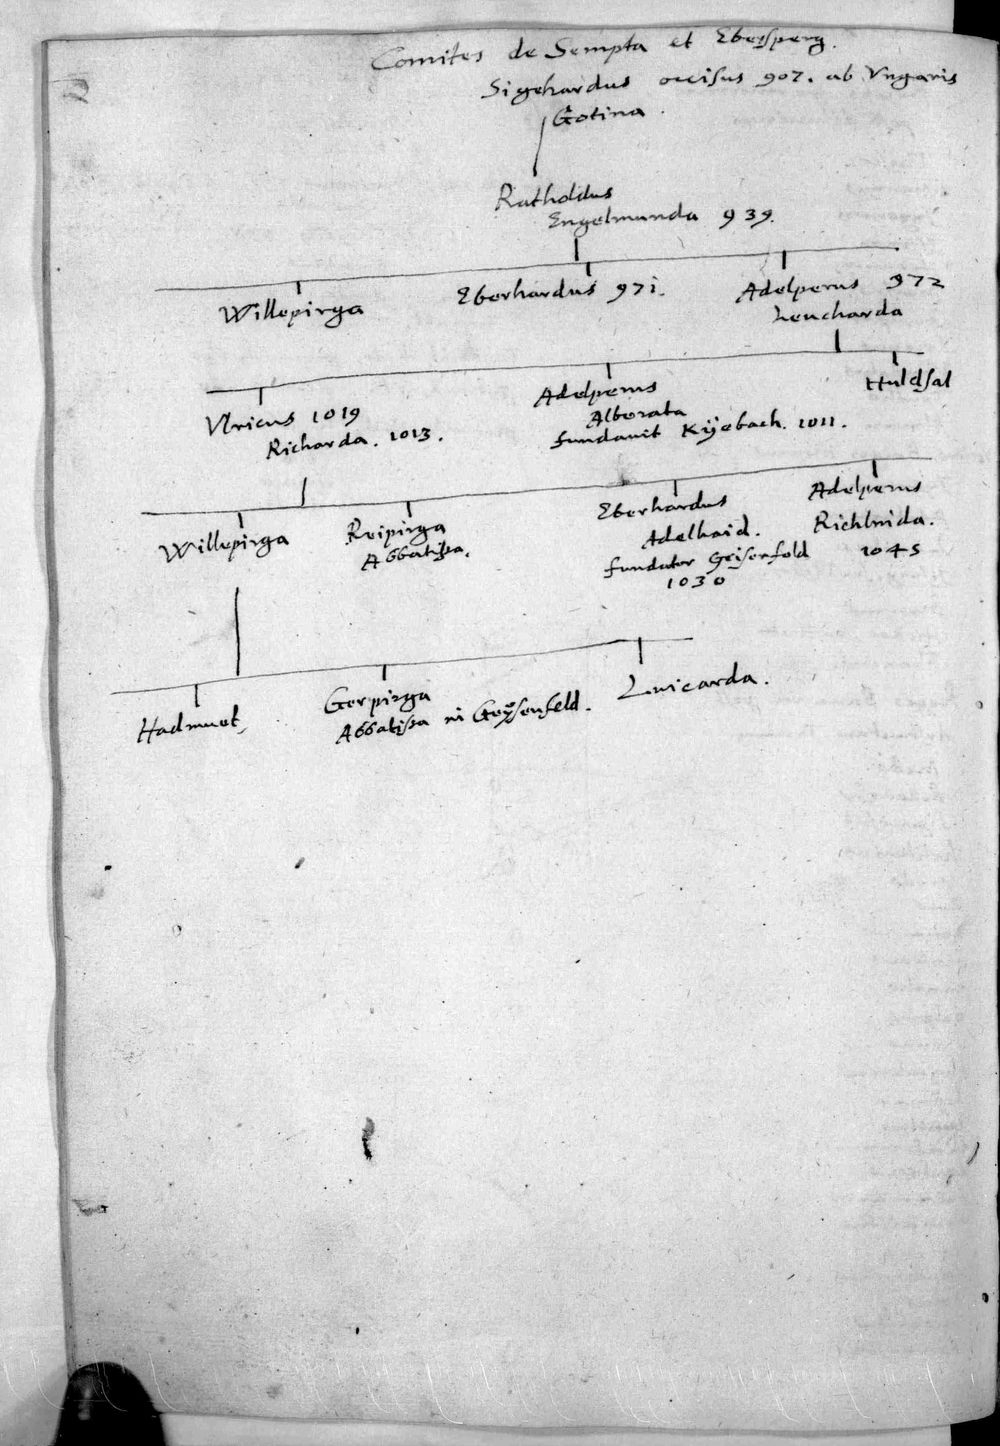 Comites de Sempta et Ebersperg.
Sigehardus occisus 907. ab Vngaris
Gotina.
Ratholdus
Engelmunda 939.
Willepirga
Eberhardus 971.
Adelperus 972
Leucharda
Vlricus 1019
Richarda. 1013.
Adelperus
Alberata
fundauit Kÿebach. 1011.
Huldsal
Willepirga
Reipirga
Abbatissa.
Eberhardus
Adelhaid.
fundator Geisenfeld
1030
Adelperus
Richlnida.
1045
Hadmuet
Gerpirga
Abbatissa in Geÿsenfeld.
Luicarda.